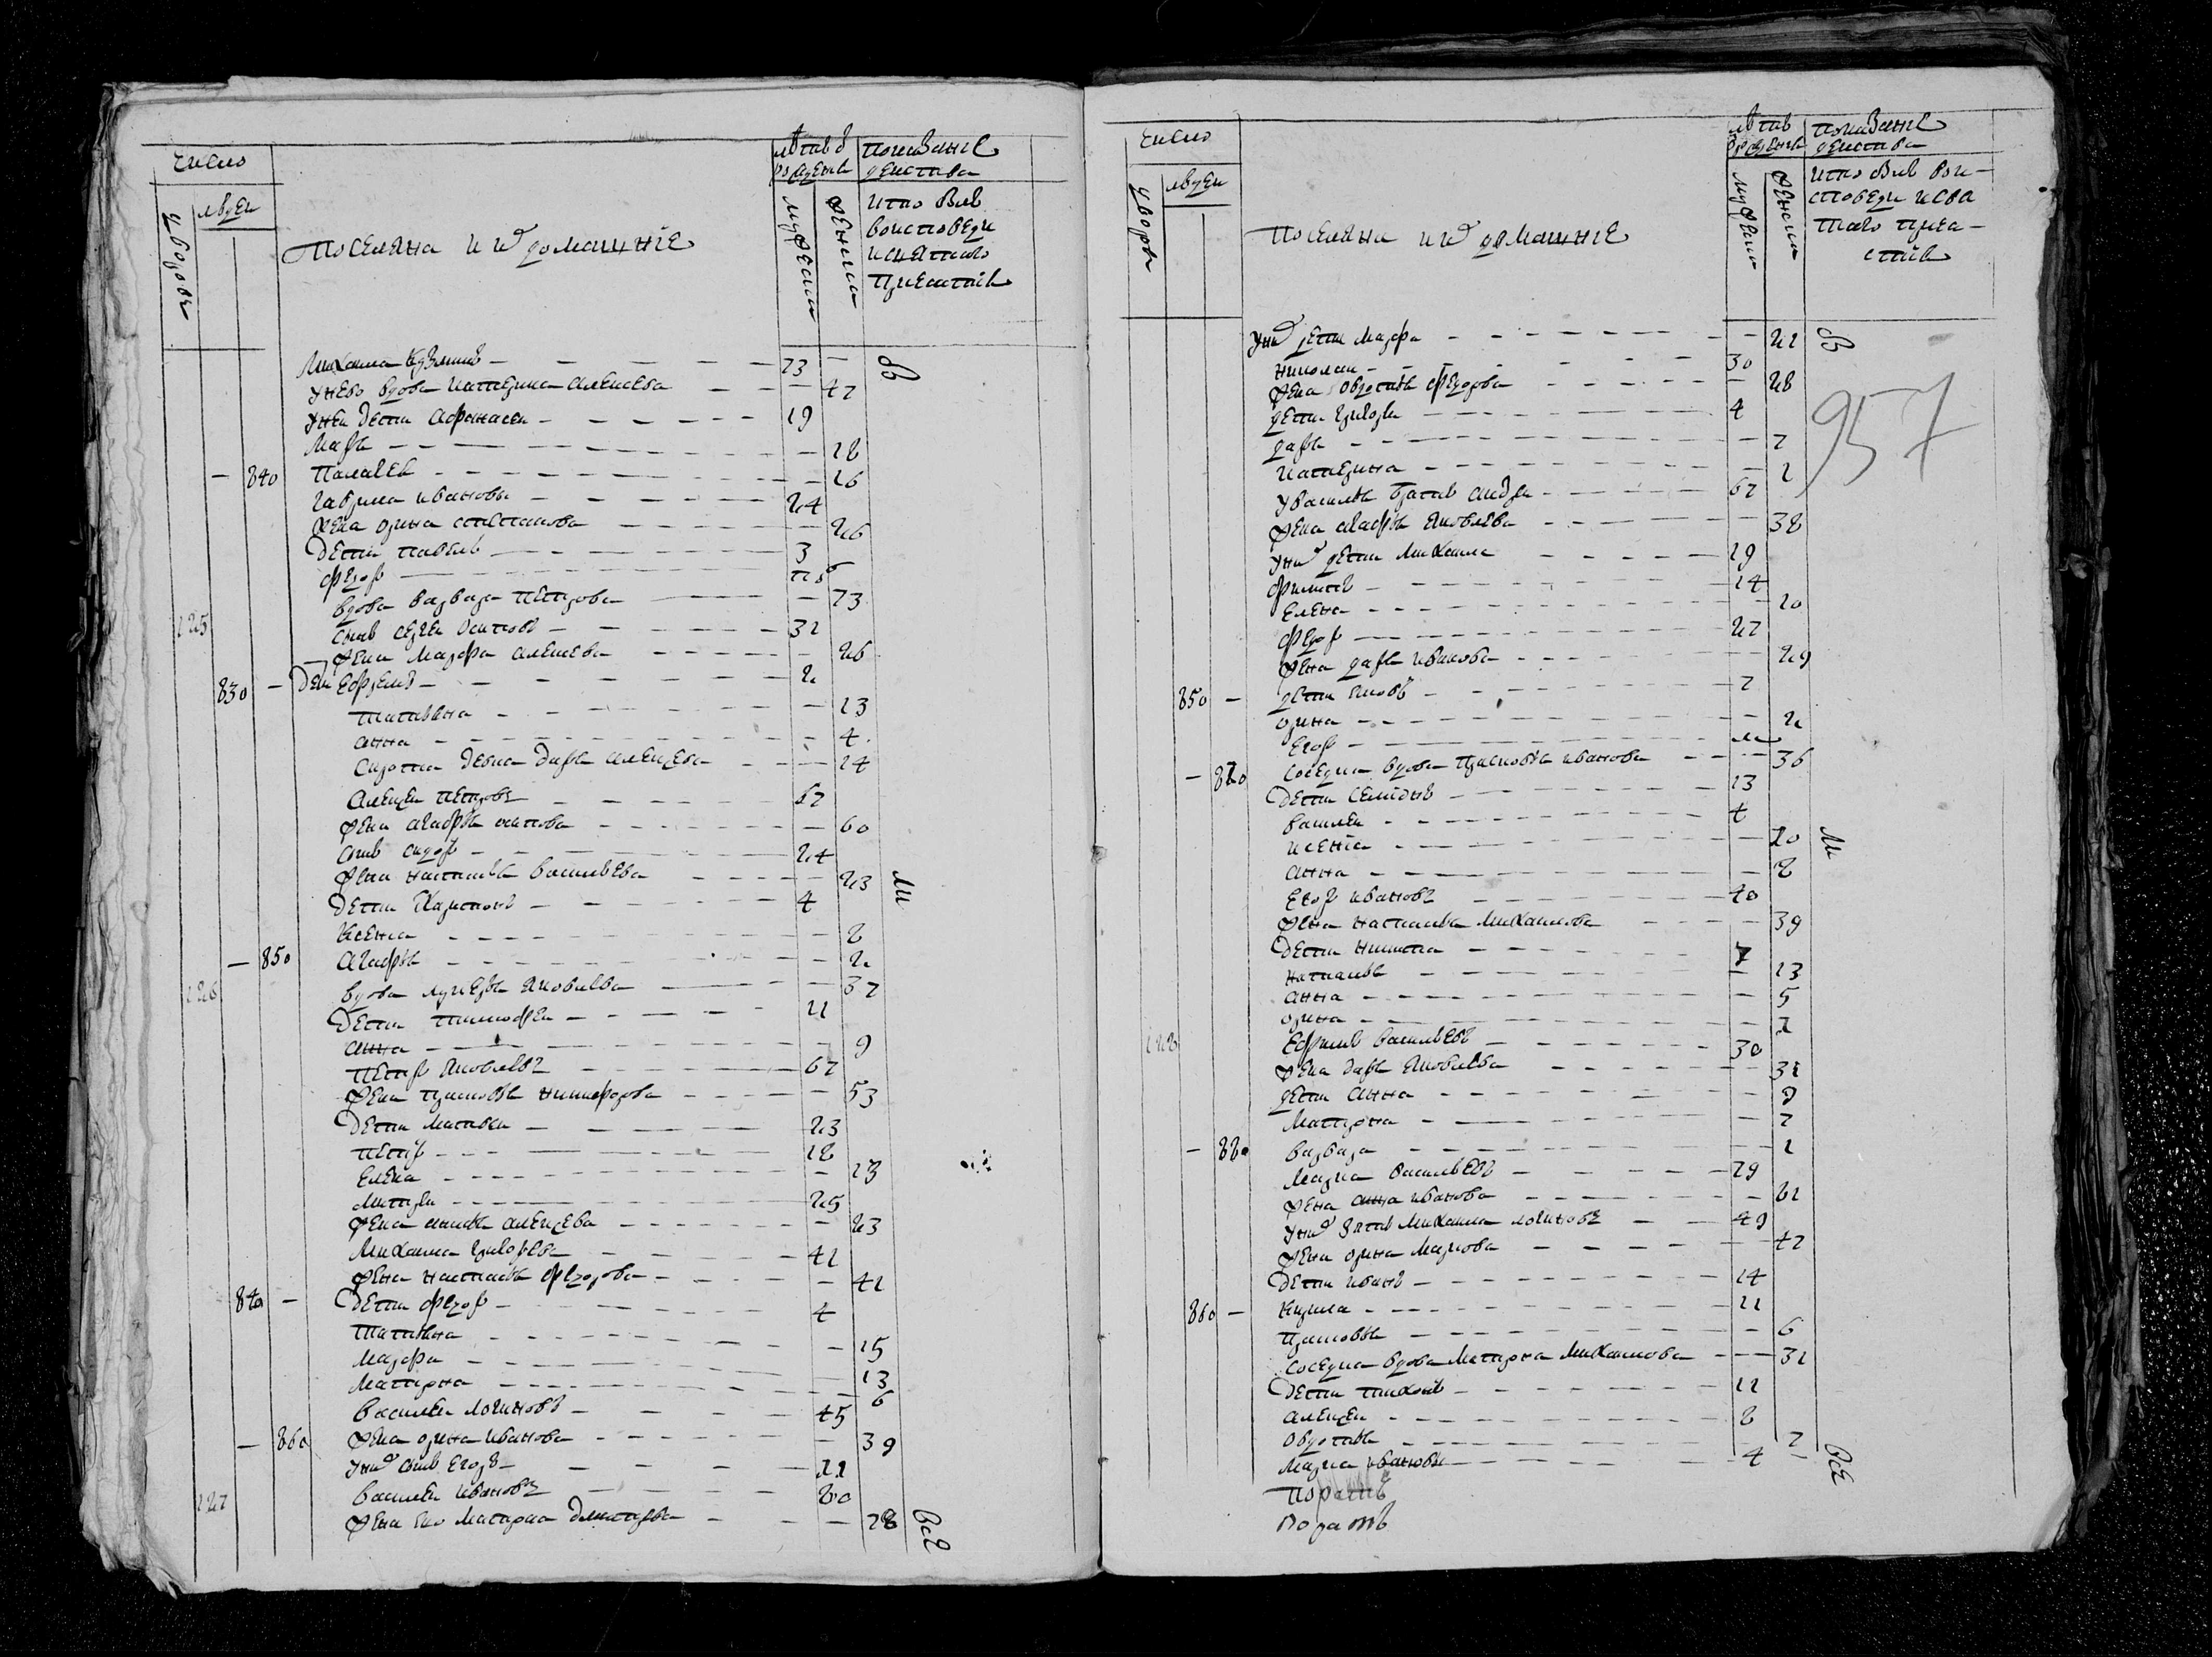 число
дворовъ
людеи
Поселяна и ихъ домашніе
лѣта ѿ рожденія
мужеска
женска
показаніе действа
кто былъ
во исповеди
и святаго
причастія
Михаила Кузминъ 73
у него вдова Катерина Алексеева 47
у неи дети Афанасеи 19
Марья 18
840 Палагея 16
Гаврила Ивановъ 24
жена Орина Степанова 26
дети Павелъ 3
Федоръ
125 вдова Варвара Петрова 73
сынъ Сергеи Осиповъ 31
жена Марфа Алексеева 26
830 дети Ефремъ 2
Татьяна 13
Анна 4
сирота девка Дарья Алексеева 14
Алексеи Петровъ 67
жена Агафья Осипова 60
сынъ Сидоръ 24
жена Настасья Васильева 23
дети Харитонъ 4
Ксенья 8
850 Агафья 2
126 вдова Лукерья Яковлева 37
дети Тимофеи 11
Анна 9
Петръ Яковлевъ 67
жена Прасковья Никифорова 53
дети Матвеи 23
Петръ 18
Елена 13
Митреи 25
жена Алексеева 23
Михаила Григорьевъ 41
жена Настасья Федорова 41
840 дети Федоръ 4
Татьяна 15
Марфа 13
Матрена 6
Василеи Логиновъ 45
860 жена Орина Иванова 39
у нихъ сынъ Егоръ 11
127 Василеи Ивановъ 80
жена ево Матрена Дмитрева 78
в
ми
все
число
дворовъ
людеи
Поселяна и ихъ домашніе
лѣта рожденія
мужеска
женска
показаніе действа
кто былъ во и-
споведи и свя
таго прича-
стія
957
у нихъ дети Марфа 21
Николаи 30
жена Овдотья Федорова 28
дети Григореи 4
Дарья 7
Катерина 1
у Василья братъ Андреи 67
жена Агафья Яковлева 38
у нихъ дети Михаила 19
Филипъ 14
Елена 10
Федоръ 27
жена Дарья Иванова 29
850 дети Яковъ 7
Орина 2
Егоръ
870 соседка вдова Прасковья Иванова 36
дети Семионъ 13
Василеи 4
Ксенія 10
Анна 8
Егоръ Ивановъ 40
жена Настасья Михаилова 39
дети Никита 7
Наталья 13
Анна 5
Орина 2
128 Ефимъ Васильевъ 30
жена Дарья Яковлева 31
дети Анна 9
Матрона 7
880 Варвара 1
Марка Васильевъ 79
жена Анна Иванова 61
у нихъ зять Михаила Логиновъ 49
жена Орина Маркова 47
дети Иванъ 14
860 Кирила 11
Прасковья 6
соседка вдова Матрона Михаилова 31
дети Тихонъ 11
Алексеи 8
Овдотья 7
Марка Ивановъ 4
в
ми
все